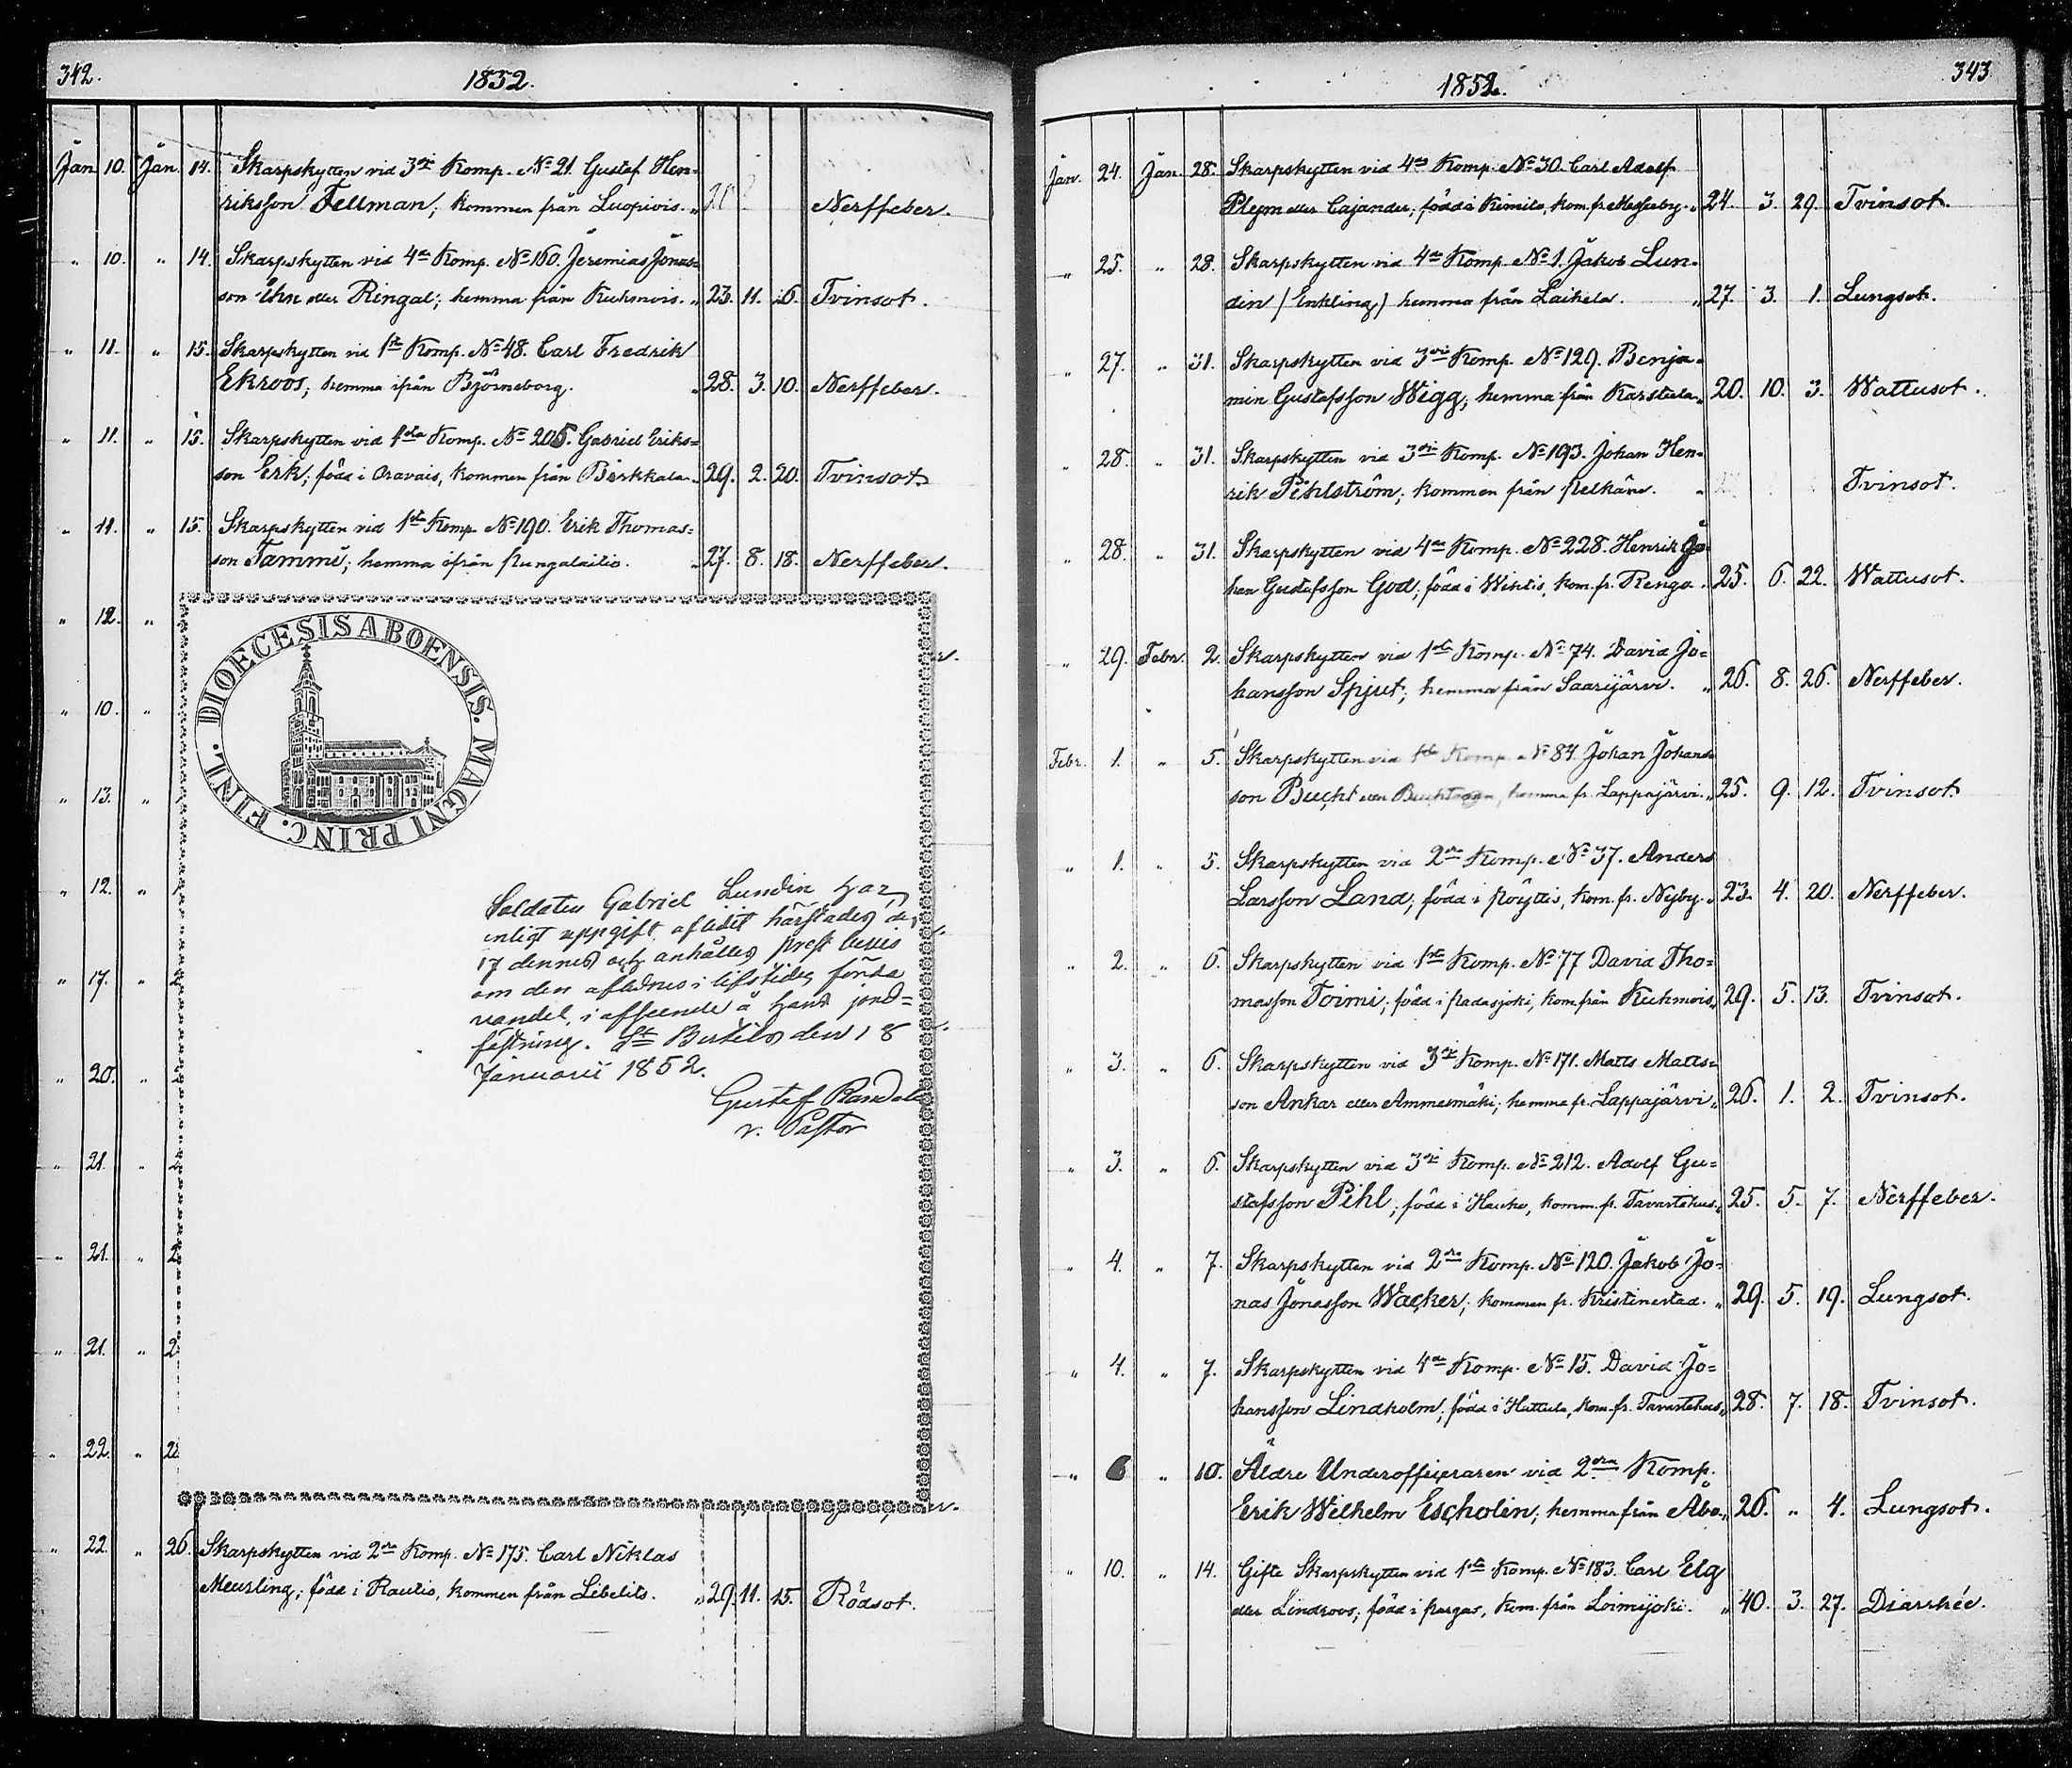 342.
1852.
Jan. 10. Jan. 14. Skarpskytten vid 3dje Komp. No 21. Gustaf Hen-
riksson Fellman; kommen från Luopiois. Nerffeber.
" 10. " 14. Skarpskytten vid 4de Komp. No 160. Jeremias Jonas-
son Ihn eller Ringal; hemma från Kuhmois. " 23. 11. 6. Tvinsot.
" 11. " 15. Skarpskytten vid 1sta Komp. No 48. Carl Fredrik
Ekroos; hemma ifrån Björneborg. " 28. 3. 10. Nerffeber.
" 11. " 15. Skarpskytten vid 1sta Komp. No 205. Gabriel Eriks-
son Erk; född i Oravais, kommen från Birkkala. " 29. 2. 20. Tvinsot
" 11. " 15. Skarpskytten vid 1sta Komp. No 190. Erik Thomas-
son Tammi; hemma ifrån Pungalaitio. " 27. 8. 18. Nerffeber.
" 12. "
" 10. "
" 13. "
" 12. "
" 17. "
" 20. "
" 21. " 2
" 21. " 2
" 21. " 2
" 22. " 2
DIOECESIS ABOENSIS. MAGNI PRINC. FINL.
Soldaten Gabriel Lundin har
enligt uppgift aflidit härstädes den
17 dennes och anhålles prest bevis
om den aflidnes i lifstiden förda
vandel, i afseende å hans jord-
fästning. St Bertils den 18
Januarii 1852.
Gustaf Randel
v. Pastor
" 22. " 26. Skarpskytten vid 2dra Komp. No 175. Carl Niklas
Meurling; född i Rautio, kommen från Libelits. " 29. 11. 15. Rödsot.
1852.
343
Jan. 24. Jan. 28. Skarpskytten vid 4de Komp. No 30. Carl Adolf
Plym eller Cajander; född i Kimito, kom. fr. Messuby. " 24. 3. 29. Tvinsot.
" 25. " 28. Skarpskytten vid 4de Komp. No 1. Jakob Lun-
din (Enkling) hemma från Laihela. " 27. 3. 1. Lungsot.
" 27. " 31. Skarpskytten vid 3dje Komp. No 129. Benja-
min Gustafsson Wigg; hemma från Karstula. " 20. 10. 3. Wattusot.
" 28. " 31. Skarpskytten vid 3dje Komp. No 193. Johan Hen-
rik Pihlström; kommen från Pelkäne. " Tvinsot.
" 28. " 31. Skarpskytten vid 4de Komp. No 228. Henrik Jo-
han Gustafsson God; född i Wihtis, kom. fr. Rengo. " 25. 6. 22. Wattusot.
" 29. Febr. 2. Skarpskytten vid 1sta Komp. No 74. David Jo-
hansson Spjut; hemma från Saarijärvi. " 26. 8. 26. Nerffeber.
Febr. 1. " 5. Skarpskytten vid 1sta Komp. No 84. Johan Johans-
son Bucht eller hemma fr. Lappajärvi. " 25. 9. 12. Tvinsot.
" 1. " 5. Skarpskytten vid 2dra Komp. No 37. Anders
Larsson Land; född i Pöyttis, kom. fr. Nyby. " 23. 4. 20. Nerffeber.
" 2. " 6. Skarpskytten vid 1sta Komp. No 77 David Tho-
masson Toimi; född i Padasjoki, kom. från Kuhmois. " 29. 5. 13. Tvinsot.
" 3. " 6. Skarpskytten vid 3dje Komp. No 171. Matts Matts-
son Ankar eller Ammesmäki; hemma fr. Lappajärvi " 26. 1. 2. Tvinsot.
" 3. " 6. Skarpskytten vid 3dje Komp. No 212. Adolf Gu-
stafsson Pihl; född i Hauho, komm. fr. Tavastehus. " 25. 5. 7. Nerffeber.
" 4. " 7. Skarpskytten vid 2dra Komp. No 120. Jakob Jo-
nas Jonasson Wacker; kommen fr. Kristinestad. " 29. 5. 19. Lungsot.
" 4. " 7. Skarpskytten vid 4de Komp. No 15. David Jo-
hansson Lindholm; född i Hattula, kom. fr. Tavastehus. " 28. 7. 18. Tvinsot.
" 6 " 10. Äldre Underofficeraren vid 2dra Komp.
Erik Wilhelm Escholin; hemma från Åbo. " 26. " 4. Lungsot.
" 10. " 14. Gifte Skarpskytten vid 1sta Komp. No 183. Carl Elg
eller Lindroos; född i Pargas, kom. från Loimijoki. " 40. 3. 27. Diarrhée.